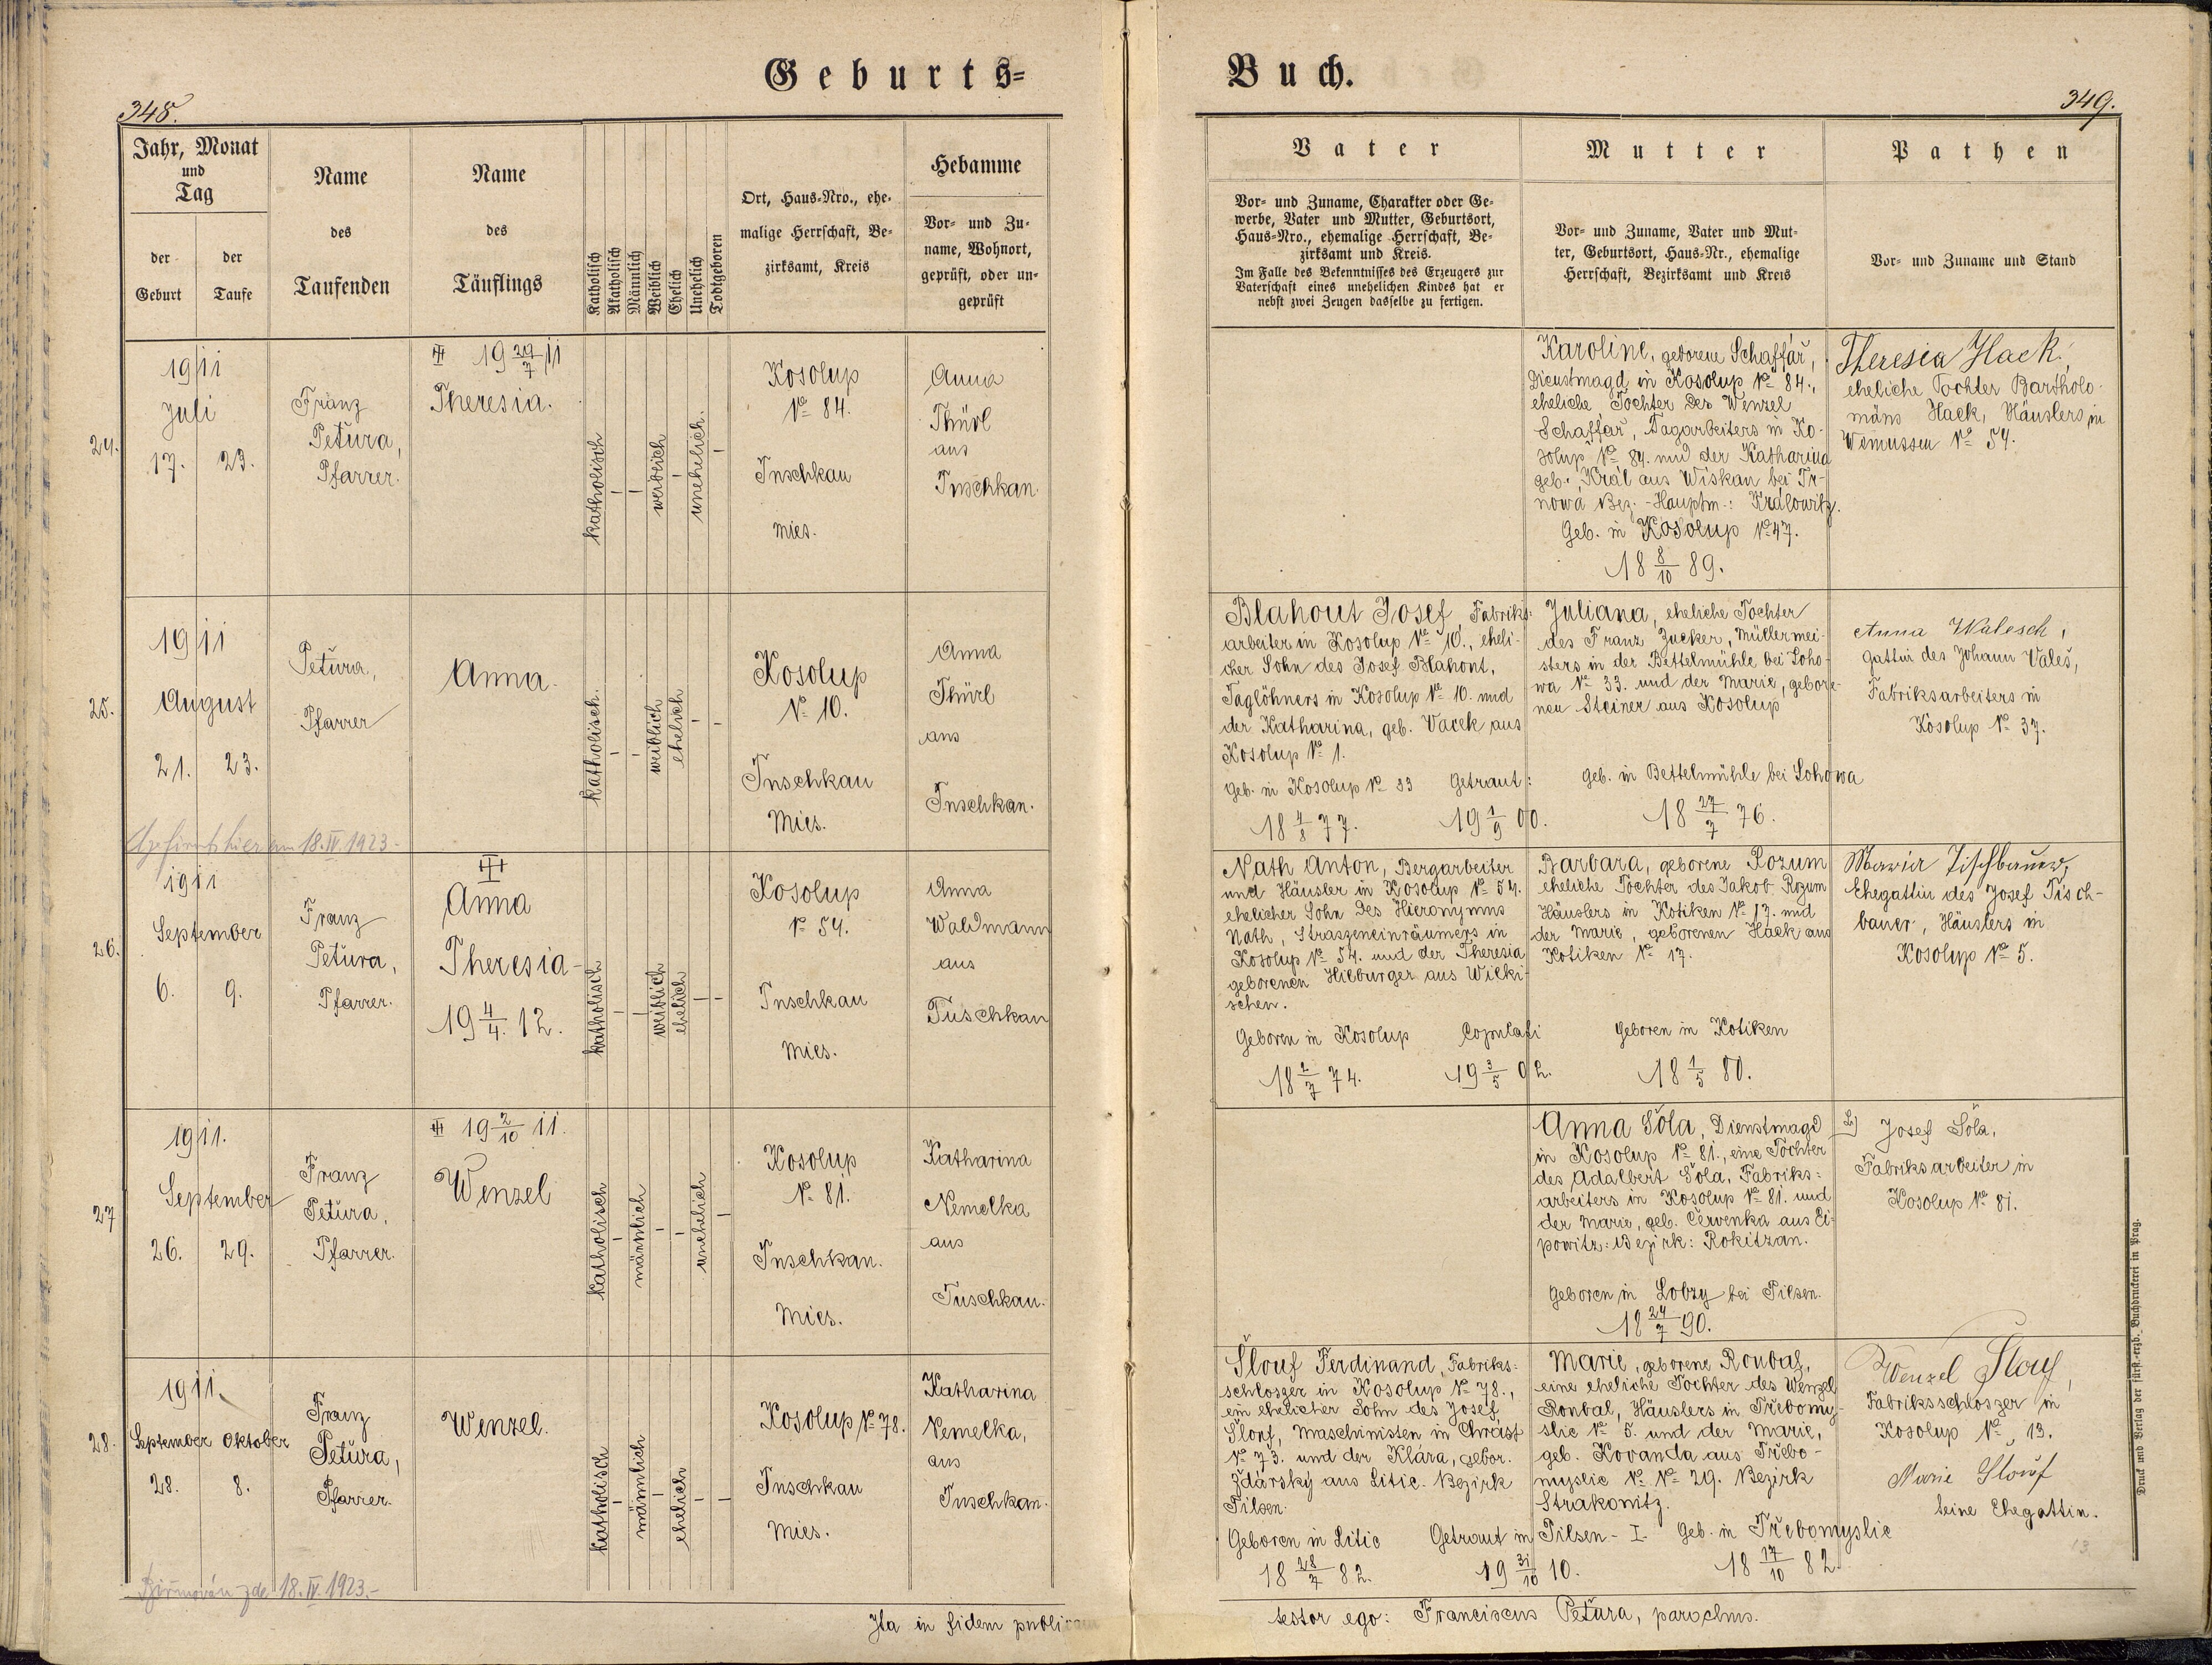 Geburts=
Buch.
348.
349.
Jahr, Monat
und
Tag
der
Geburt
der
Taufe
Name
des
Taufenden
Name
des
Täuflings
Katholisch
Akatholisch
Männlich
Weiblich
Ehelich
Unehelich
Todtgeboren
Ort, Haus-Nro., ehe-
malige Herrschaft, Be-
zirksamt, Kreis
Hebamme
Vor- und Zu-
name, Wohnort,
geprüft, oder un-
geprüft
Vater
Vor- und Zuname, Charakter oder Ge-
werbe, Vater und Mutter, Geburtsort,
Haus-Nro., ehemalige Herrschaft, Be-
zirksamt und Kreis.
Im Falle des Bekenntnisses des Erzeugers zur
Vaterschaft eines unehelichen Kindes hat er
nebst zwei Zeugen dasselbe zu fertigen.
Mutter
Vor- und Zuname, Vater und Mut-
ter, Geburtsort, Haus-Nr., ehemalige
Herrschaft, Bezirksamt und Kreis
Pathen
Vor- und Zuname und Stand
24.
1911
Juli
17. 23.
Franz
Petura,
Pfarrer.
19 29/7 11
Theresia.
katholisch
-
-
weiblich
-
unehelich.
-
Kosolup
No 84.
Tuschkau
Mies.
Anna
Thürl
aus
Tuschkau.
Karoline, geborene Schaffář,
Dienstmagd in Kosolup No 84.,
eheliche Tochter des Wenzel
Schaffář, Tagarbeiters in Ko-
solup No 84. und der Katharina
geb. Král aus Wiskau bei Tr-
nowa Bez.-Hauptm.: Kralowitz.
Geb. in Kosolup No 47.
18 8/10 89.
Theresia Hack,
eheliche Tochter Bartholo-
mäus Hack, Häuslers in
Wemussen No 54.
25.
1911
August
21. 23.
Petura,
Pfarrer
Anna.
katholisch.
-
-
weiblich
ehelich
-
-
Kosolup
No 10.
Tuschkau
Mies.
Anna
Thürl
aus
Tuschkau.
Blahout Josef, Fabriks-
arbeiter in Kosolup No 10., eheli-
cher Sohn des Josef Blahout,
Taglöhners in Kosolup No 10. und
der Katharina, geb. Vacek aus
Kosolup No 1.
Geb. in Kosolup No 33 Getraut:
18 4/8 77. 19 1/9 00.
Juliana, eheliche Tochter
des Franz Zucker, Müllermei-
sters in der Bettelmühle bei Loho-
wa No 33. und der Marie, gebore-
nen Steiner aus Kosolup
Geb. in Bettelmühle bei Lohowa
18 27/7 76.
Anna Walesch,
Gattin des Johann Valeš,
Fabriksarbeiters in
Kosolup No 37.
Gefirmt hier am 18.IV.1923-
26.
1911
September
6. 9.
Franz
Petura,
Pfarrer.
Anna
Theresia
19 4/4. 12.
katholisch
-
-
weiblich
ehelich
-
-
Kosolup
No 54.
Tuschkau
Mies.
Anna
Waldmann
aus
Tuschkau
Nath Anton, Bergarbeiter
und Häusler in Kosolup No 54.
ehelicher Sohn des Hieronymus
Nath, Straszeneinräumers in
Kosolup No 54. und der Theresia
geborenen Hilburger aus Wilki-
schen.
Geboren in Kosolup Copulati
18 2/7 74. 19 3/5 02.
Barbara, geborene Rozum
eheliche Tochter des Jakob Rozum
Häuslers in Kotiken No 17. und
der Marie, geborenen Hack aus
Kotiken No 17.
Geboren in Kotiken
18 1/5 80.
Maria Tischbauer,
Ehegattin des Josef Tisch-
bauer, Häuslers in
Kosolup No 5.
27
1911.
September
26. 29.
Franz
Petura,
Pfarrer.
19 2/10 11.
Wenzel
katholisch
-
männlich
-
-
unehelich
-
Kosolup
No 81.
Tuschkau.
Mies.
Katharina
Nemelka
aus
Tuschkau.
Anna Šola, Dienstmagd
in Kosolup No 81., eine Tochter
des Adalbert Šola, Fabriks-
arbeiters in Kosolup No 81. und
der Marie, geb. Červenka aus Ei-
powitz: Bezirk: Rokitzan.
Geboren in Lobzy bei Pilsen.
18 24/7 90.
Josef Šola,
Fabriksarbeiter in
Kosolup No 81.
28.
1911.
September Oktober
28. 8.
Franz
Petura,
Pfarrer.
Wenzel.
katholisch
-
männlich
-
ehelich
-
-
Kosolup No 78.
Tuschkau
Mies.
Katharina
Nemelka,
aus
Tuschkau.
Šlouf Ferdinand, Fabriks-
schloszer in Kosolup No 78.,
ein ehelicher Sohn des Josef
Šlouf, Maschinisten in Chrást
No 73. und der Klára, gebor.
Ždárský aus Litic. Bezirk
Pilsen.
Geboren in Litic Getraut in Pilsen - I.
18 28/7 82. 19 31/10 10.
Marie, geborene Roubal,
eine eheliche Tochter des Wenzel
Roubal, Häuslers in Třebomy-
slic No 5. und der Marie,
geb. Kovanda aus Třebo-
myslic No No 29. Bezirk
Strakonitz.
Geb. in Třebomyslic
18 17/10 82.
Wenzel Šlouf,
Fabriksschloszer in
Kosolup No 13.
Marie Šlouf
seine Ehegattin.
Biřmován zde 18.IV.1923.-
Ita in fidem publicam
testor ego: Franciscus Petura, parochus.
Druck und Verlag der fürst.-erzb. Buchdruckerei in Prag.